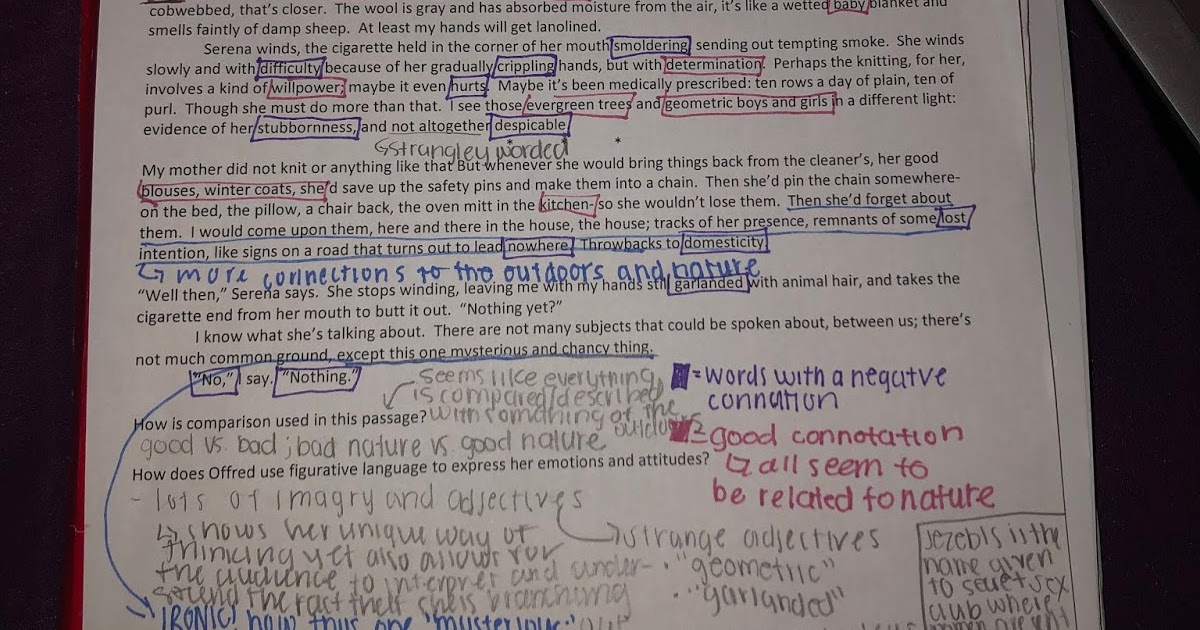 cobwebbed, that's closer. The wool is gray and has absorbed moisture from the air, it's like a wetted baby blanket and
smells faintly of damp sheep. At least my hands will get lanolined.
Serena winds, the cigarette held in the corner of her mouth smoldering, sending out tempting smoke. She winds
slowly and with difficulty because of her gradually crippling hands, but with determination. Perhaps the knitting, for her,
involves a kind of willpower; maybe it even hurts. Maybe it's been medically prescribed: ten rows a day of plain, ten of
purl. Though she must do more than that. I see those evergreen trees and geometric boys and girls in a different light:
evidence of her stubbornness, and not altogether despicable
strangley worded
My mother did not knit or anything like that But whenever she would bring things back from the cleaner's, her good
blouses, winter coats, she'd save up the safety pins and make them into a chain. Then she'd pin the chain somewhere-
on the bed, the pillow, a chair back, the oven mitt in the kitchen- so she wouldn't lose them. Then she'd forget about
them. I would come upon them, here and there in the house, the house; tracks of her presence, remnants of some lost
intention, like signs on a road that turns out to lead nowhere. Throwbacks to domesticity
↳ more connections to the outdoors and nature
"Well then," Serena says. She stops winding, leaving me with my hands still garlanded with animal hair, and takes the
cigarette end from her mouth to butt it out. "Nothing yet?"
I know what she's talking about. There are not many subjects that could be spoken about, between us; there's
not much common ground, except this one mysterious and chancy thing.
"No," I say. "Nothing."
seems like everything
is compared/described
with something of the
outdoors
= words with a negatve
connation
How is comparison used in this passage?
good vs. bad ; bad nature vs. good nature
= good connotation
↳ all seem to
be related to nature
How does Offred use figurative language to express her emotions and attitudes?
- lots of imagry and adjectives
↳ shows her unique way of
thinking yet also allows for
the audience to interpret and under-
stand the fact that she is branching
out
→ strange adjectives
. "geometric"
. "garlanded"
Jezebls is the
name given
to secret sex
club where
women
IRONIC! how this one "mysterious"